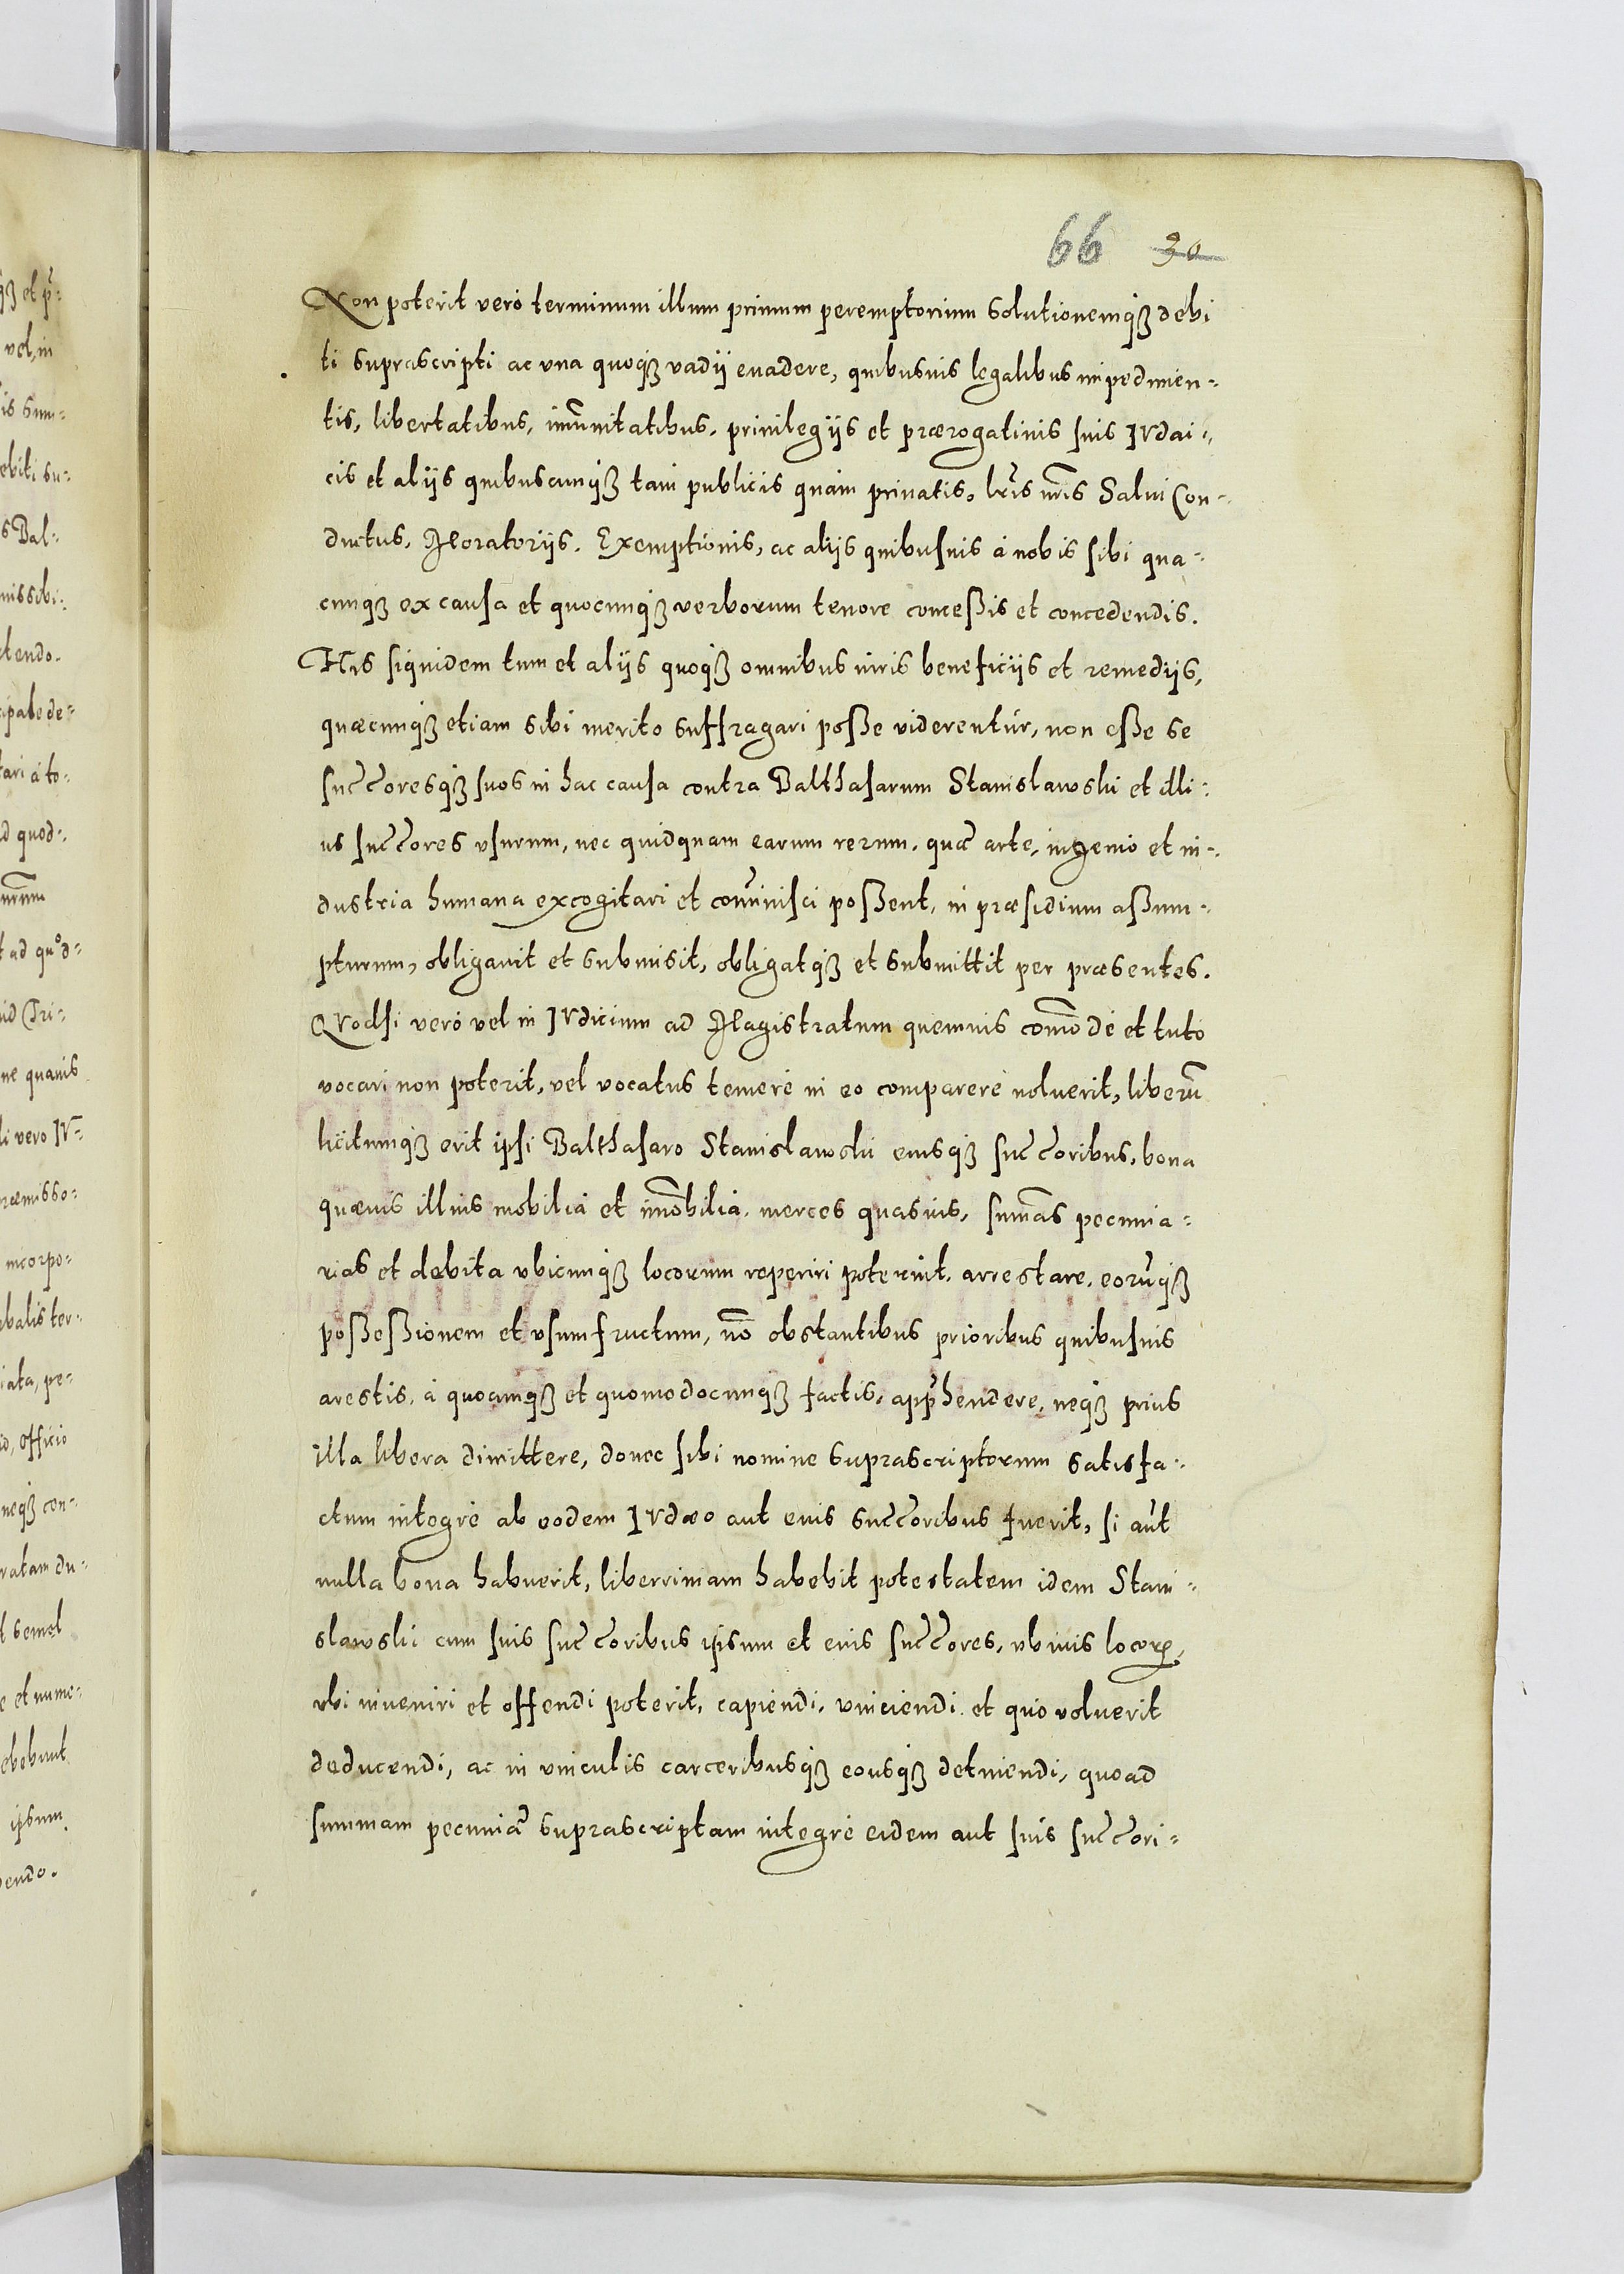 66 30
Non poterit verò terminum illum primum peremptorium solutionemq̃ꝫ debi
ti suprascripti ac vna quoq̃ꝫ vadij euadere, quibusuis legalibus impedimen-
tis, libertatibus, im̃unitatibus, priuilegijs et prærogatiuis suis Iudai-
cis et alijs quibuscumq̃ꝫ tam publicis quàm priuatis, lr̃is nr̃is Salui Con-
ductus, Moratorijs, Exemptionis, ac alijs quibusuis à nobis sibi qua-
cunqꝫ ex causa et quocunq̃ꝫ verborum tenore conceßis et concedendis.
His siquidem tum et alijs quoq̃ꝫ omnibus iuris beneficijs et remedijs,
quæcunq̃ꝫ etiam sibi merito suffragari poße viderentur, non eße se
succ̃oresq̃ꝫ suos in hac causa contra Balthasarum Stanislawski et illi-
us succ̃ores vsurum, nec quidquam earum rerum, quæ arte, ingenio et in-
dustria humana excogitari et com̃inisci poßent, in præsidium aßum-
pturum, obligauit et submisit, obligatq̃ꝫ et submittit per præsentes.
Quodsi verò vel in Iudicium ad Magistratum quemuis com̃odè et tutò
vocari non poterit, vel vocatus temerè in eo comparere noluerit, liberũ
licitumq̃ꝫ erit ipsi Balthasaro Stanislawski eiusq̃ꝫ succ̃oribus, bona
quæuis illius mobilia et im̃obilia, merces quasuis, sum̃as pecunia-
rias et debita vbicunq̃ꝫ locorum reperiri poterint, arrestare, eorũq̃ꝫ
poßeßionem et vsumfructum, nõ obstantibus prioribus quibusuis
arestis, à quocunq̃ꝫ et quomodocunq̃ꝫ factis, appr̃hendere, neq̃ꝫ prius
illa libera dimittere, donec sibi nomine suprascriptorum satisfa-
ctum integrè ab eodem Iudæo aut eius succ̃oribus fuerit, si aũt
nulla bona habuerit, liberrimam habebit potestatem idem Stani-
slawski cum suis succ̃oribus ipsum et eius succ̃ores, vbiuis locoꝝ,
vbi inueniri et offendi poterit, capiendi, vinciendi et quò voluerit
deducendi, ac in vinculis carceribusq̃ꝫ eousq̃ꝫ detinendi, quoad
summam pecuniã suprascriptam integrè eidem aut suis succ̃ori-